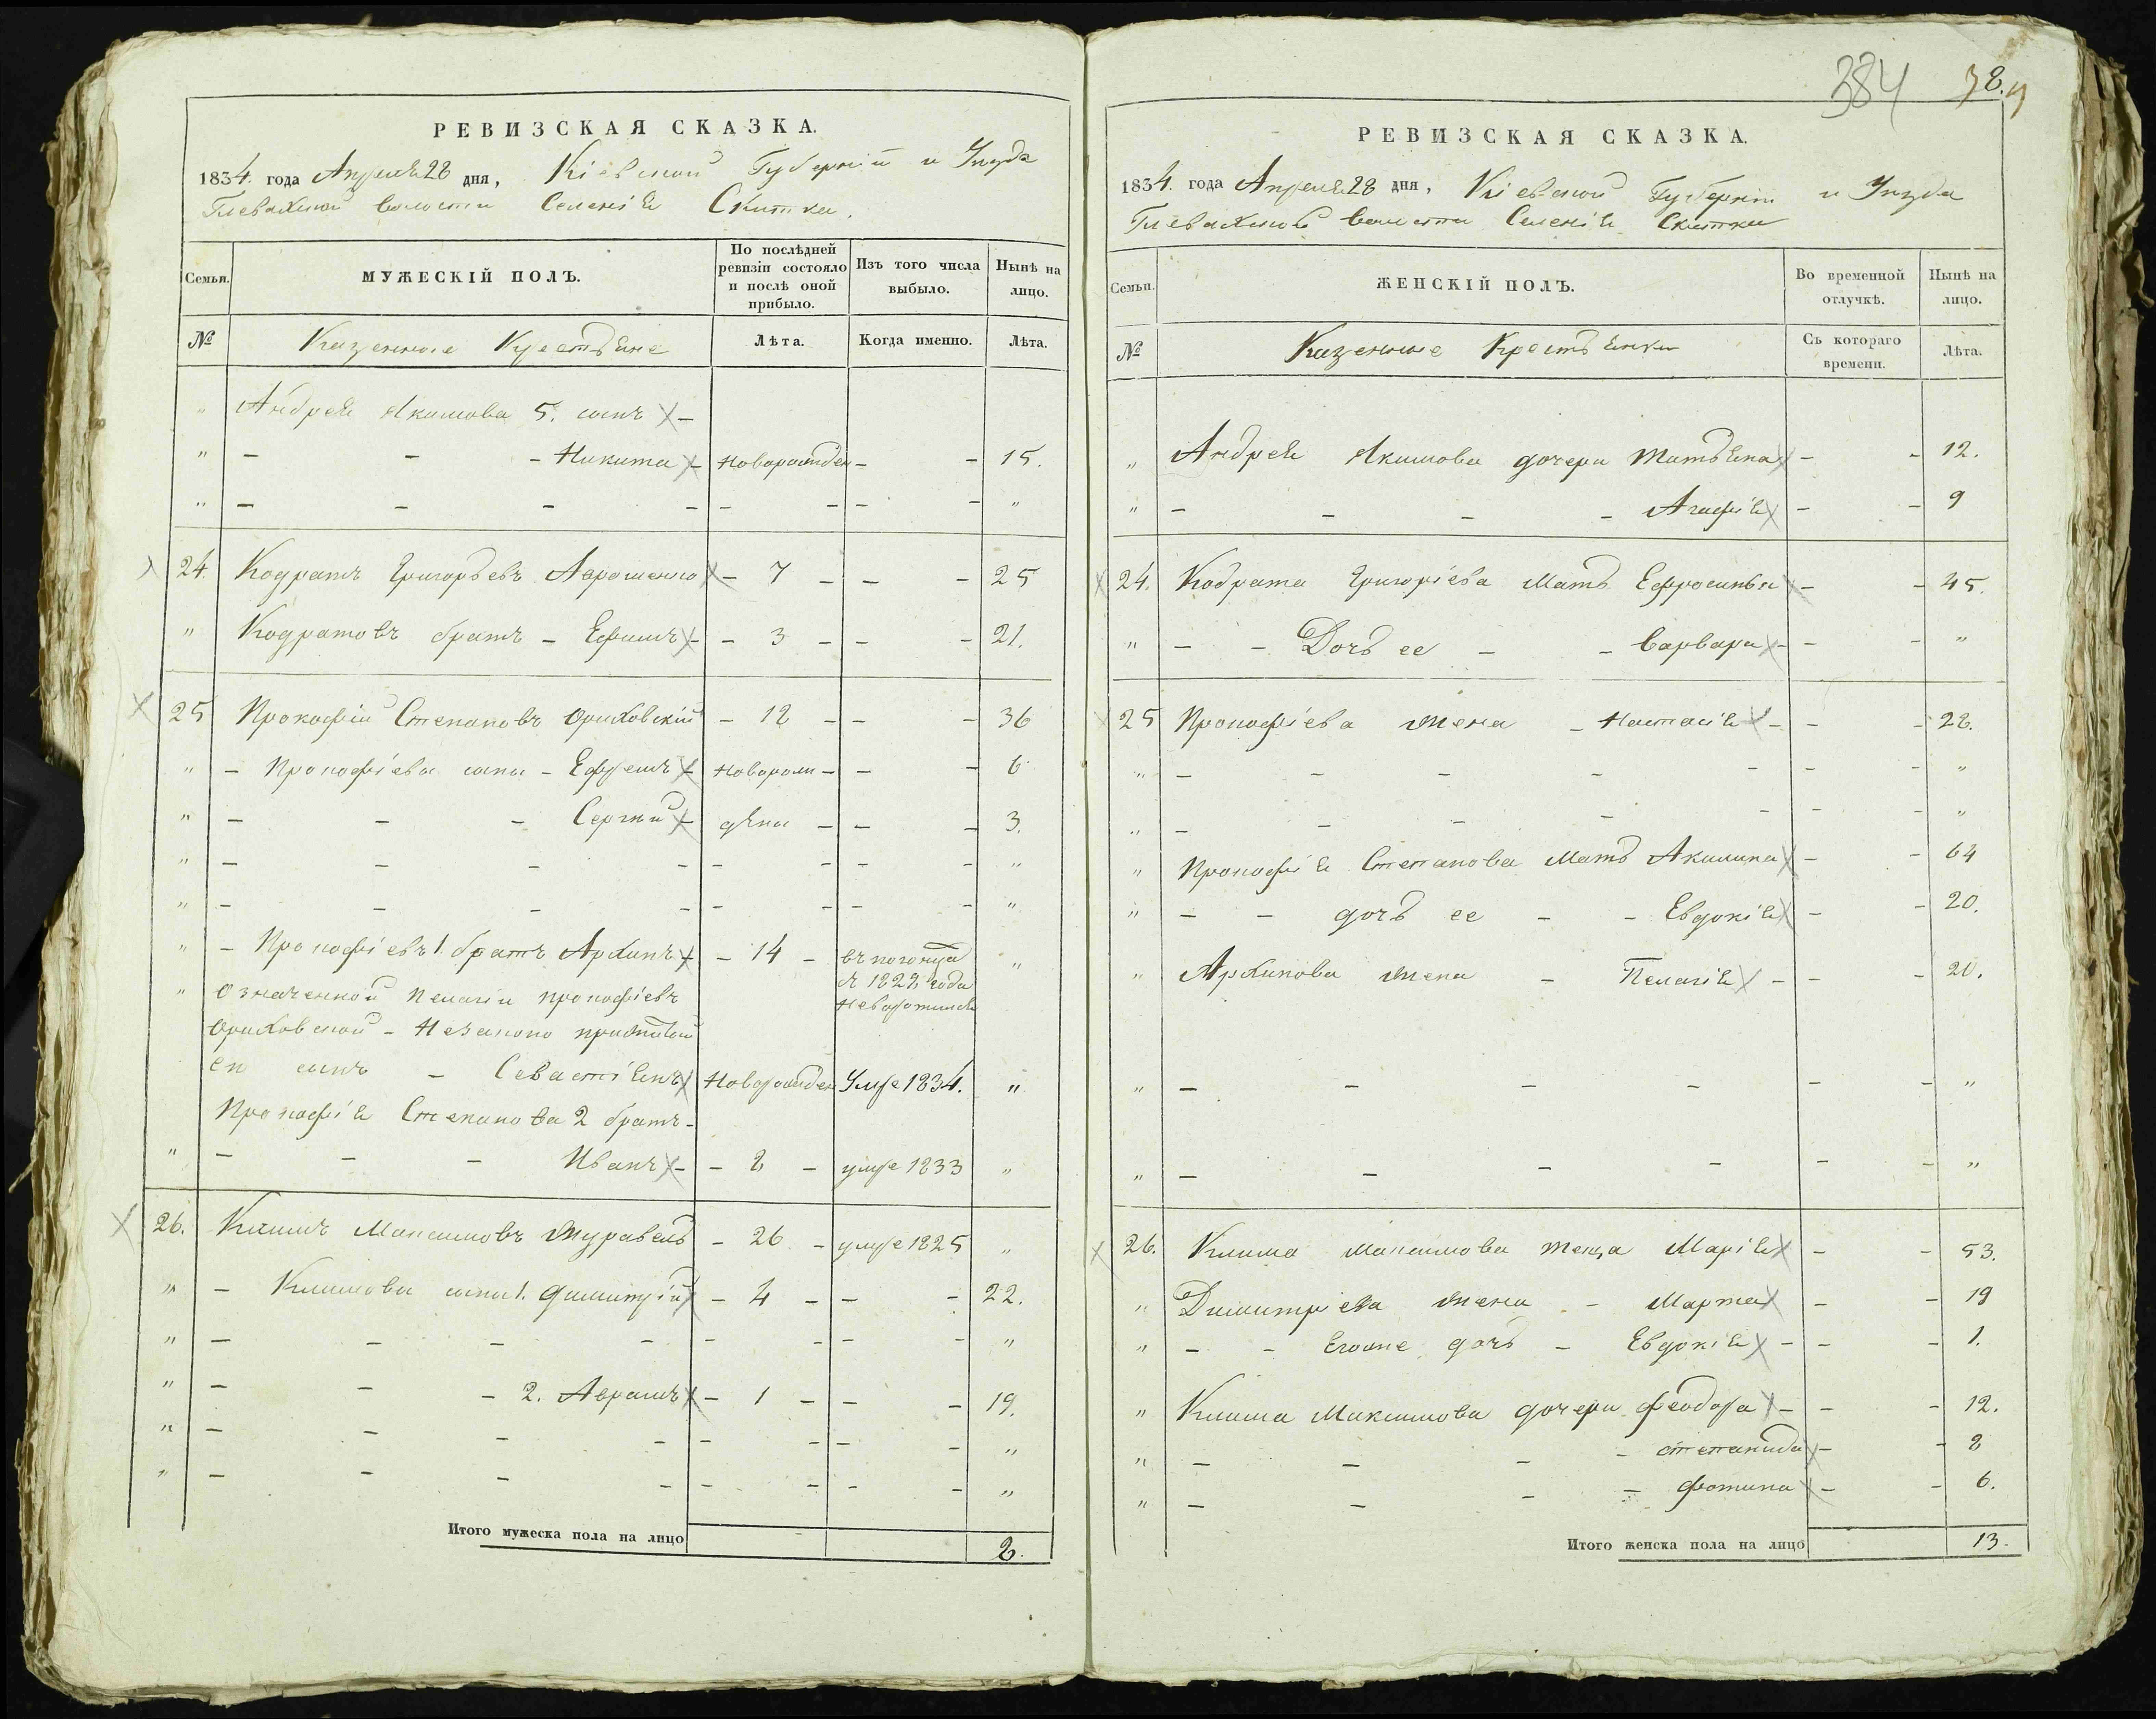 384
РЕВИЗСКАЯ СКАЗКА.
1834. года Апреля 28 дня, Кіевской Губерніи и Уезда
Глевахской волости Селенія Скитка.
Семьи.
МУЖЕСКІЙ ПОЛЪ.
По послѣдней ревизіи состояло и послѣ оной прибыло.
Изъ того числа выбыло.
Нынѣ на лицо.
№ Казенные Крестьяне Лѣта. Когда именно. Лѣта.
" Андрея Якимова 5. сынъ -
" - - - Никита - Новорожден - - 15.
" - - - - - - - - "
24. Кодратъ Григорьевъ Аврошенко - 7 - - - 25
" Кодратовъ братъ - Ефимъ - - 3 - - - 21.
25 Прокофій Степановъ Ориховскій - 18 - - - 36
" - Прокофіевы сыны - Ефремъ - Новорож - - - 6
" - - - Сергий - дѣны - - - 3.
" - - - - - - - - "
" - - - - - - - - "
" - Прокофіевъ 1. братъ Архипъ - 14 - въ погонца съ 1828 года Невозвратился "
" Означенной Пелагіи прокофіевъ
Ориховской - Незаконо прижитой
ея сынъ - Севастіянъ Новорожден Умре 1834. "
Прокофія Степанова 2 братъ -
" - - - Иванъ - - 8 - умре 1833 "
26. Климъ Максимовъ Журавель - 26 - умре 1825 "
" - Климовы сыны 1. Димитрій - 4 - - - 22.
" - - - - - - - - "
" - - - 2. Аврамъ - 1 - - - 19.
" - - - - - - - - "
" - - - - - - - - "
Итого мужеска пола на лицо 8.
РЕВИЗСКАЯ СКАЗКА.
1834. года Апреля 28 дня, Кіевской Губерніи и Уезда
Глевахской волости Селенія Скитки
Семьи.
ЖЕНСКІЙ ПОЛЪ.
Во временной отлучкѣ.
Нынѣ на лицо.
№ Казенные Крестьянки Съ котораго времени. Лѣта.
" Андрея Якимова дочери Татьяна - - 12.
" - - - - Агафія - - 9
24. Кодрата Григоріева Мать Ефросинья - - 45.
" - - Дочь ее - - Варвара - - - "
25 Прокофіева жена - Настасія - - - 28.
" - - - - - - - "
" - - - - - - - "
" Прокофія Степанова Мать Акилина - - 64
" - - дочь ее - - Евдокія - - 20.
" Архипова жена - Пелагія - - - 20.
" - - - - - - "
" - - - - - - "
26. Клима Максимова жена Марія - - 53.
" Димитріева жена - Марта - - 19
" - - Егоже дочь - Евдокія - - - 1.
" Клима Максимова дочери Феодора - - - 12.
" - - - - степанида - - 8
" - - - - фотина - - 6.
Итого женска пола на лицо 13.